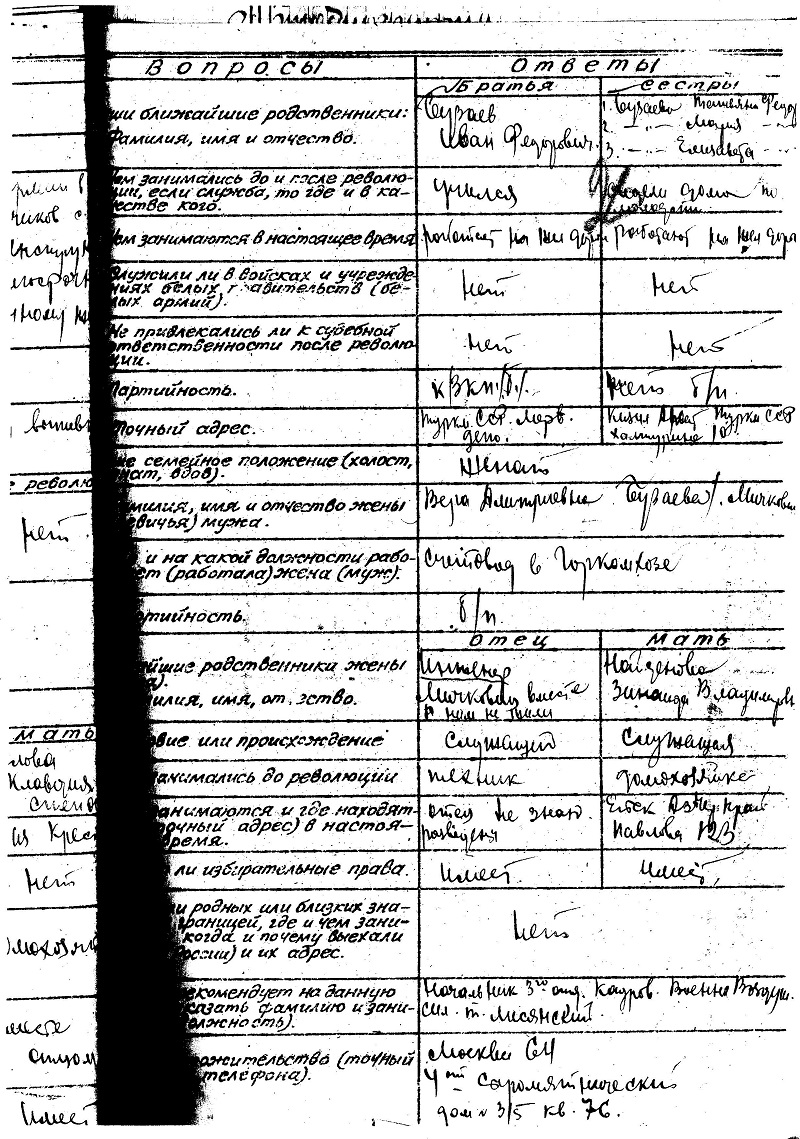 Вопросы
Ответы
Братья
Сестры
ши ближайшие родственники:
Фамилия, имя и отчество.
Бузаев
Иван Федорович.
1. Бузаева Татьяна Федор
2. —"— Мария —"—
3. —"— Елизавета —"—
ем занимались до и после револю-
ции, если служба, то где и в ка-
честве кого.
учился
сидели дома по
ем занимаются в настоящее время
работает на жел дор
работают на жел дор
Служили ли в войсках и учрежде-
ниях белых правительств (бе-
лых армий).
нет
нет
Не привлекались ли к судебной
ответственности после револю-
ции.
нет
нет
Партийность.
к/ВКП/б/.
нет б/п.
Точный адрес.
Турк. ССР. Мерв.
депо.
Кизил Арват Турк. ССР
ше семейное положение (холост,
енат, вдов).
женат
амилия, имя и отчество жены
(девичья) мужа.
Вера Дмитриевна Бузаева/.Мичкови
и на какой должности рабо-
ет (работала) жена (муж).
Счетовод в Горкомхозе
ртийность.
б/п.
Отец
Мать
йшие родственники жены
а).
илия, имя, отчество.
Инженер
Мичкович вместе
с ним не жили
Найденова
Зинаида Владимиров
овие или происхождение
Служащий
Служащая
занимались до революции
техник
домохозяйка
занимаются и где находят-
точный адрес) в настоя-
время.
отец не знаю.
разведена
Павлова 123
ли избирательные права.
Имеет.
Имеет,
ли родных или близких зна-
границей, где и чем зани-
когда и почему выехали
России) и их адрес.
нет
екомендует на данную
казать фамилию и зани-
олжность).
Начальник 3го отд. Кадров. Военно Воздуш.
Сил. т. Лисянский.
ожительства (точный
телефона).
Москва 64
4ый Сыромятнический
дом № 3/5 кв. 76.
нет
мать
Клавдия
из Крес
нет
Имеет